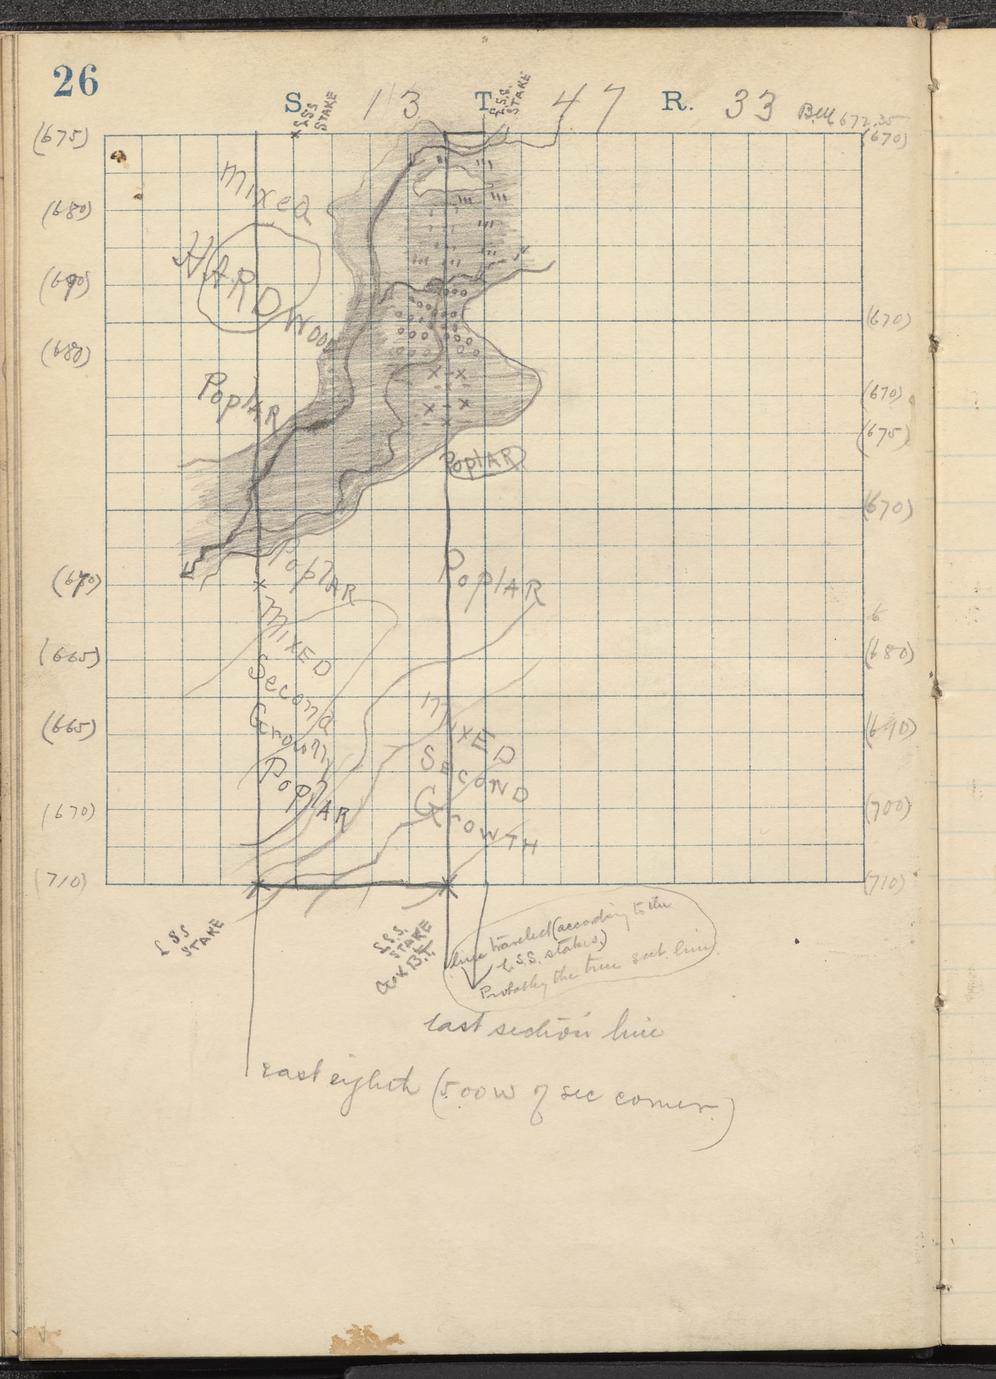 26
S. 13 T. 47 R. 33
L.S.S. STAKE
L.S.S. STAKE
B.M. 672.35
(675)
(670)
mixed
(680)
HARDWOOD
(690)
(670)
(680)
PoplAR
(670)
(675)
PoplAR
(670)
PoplAR
PoplAR
(670)
6
MIXED
(665)
(680)
Second
Growth
MIXED
(665)
(690)
SECOND
PoplAR
GROWTH
(670)
(700)
(710)
(710)
L.S.S. STAKE
L.S.S.
STAKE
B.T.
line traveled (according to the
L.S.S. stakes)
Probably the true sect. line
East section line
east eighth (500 W of sec corner)